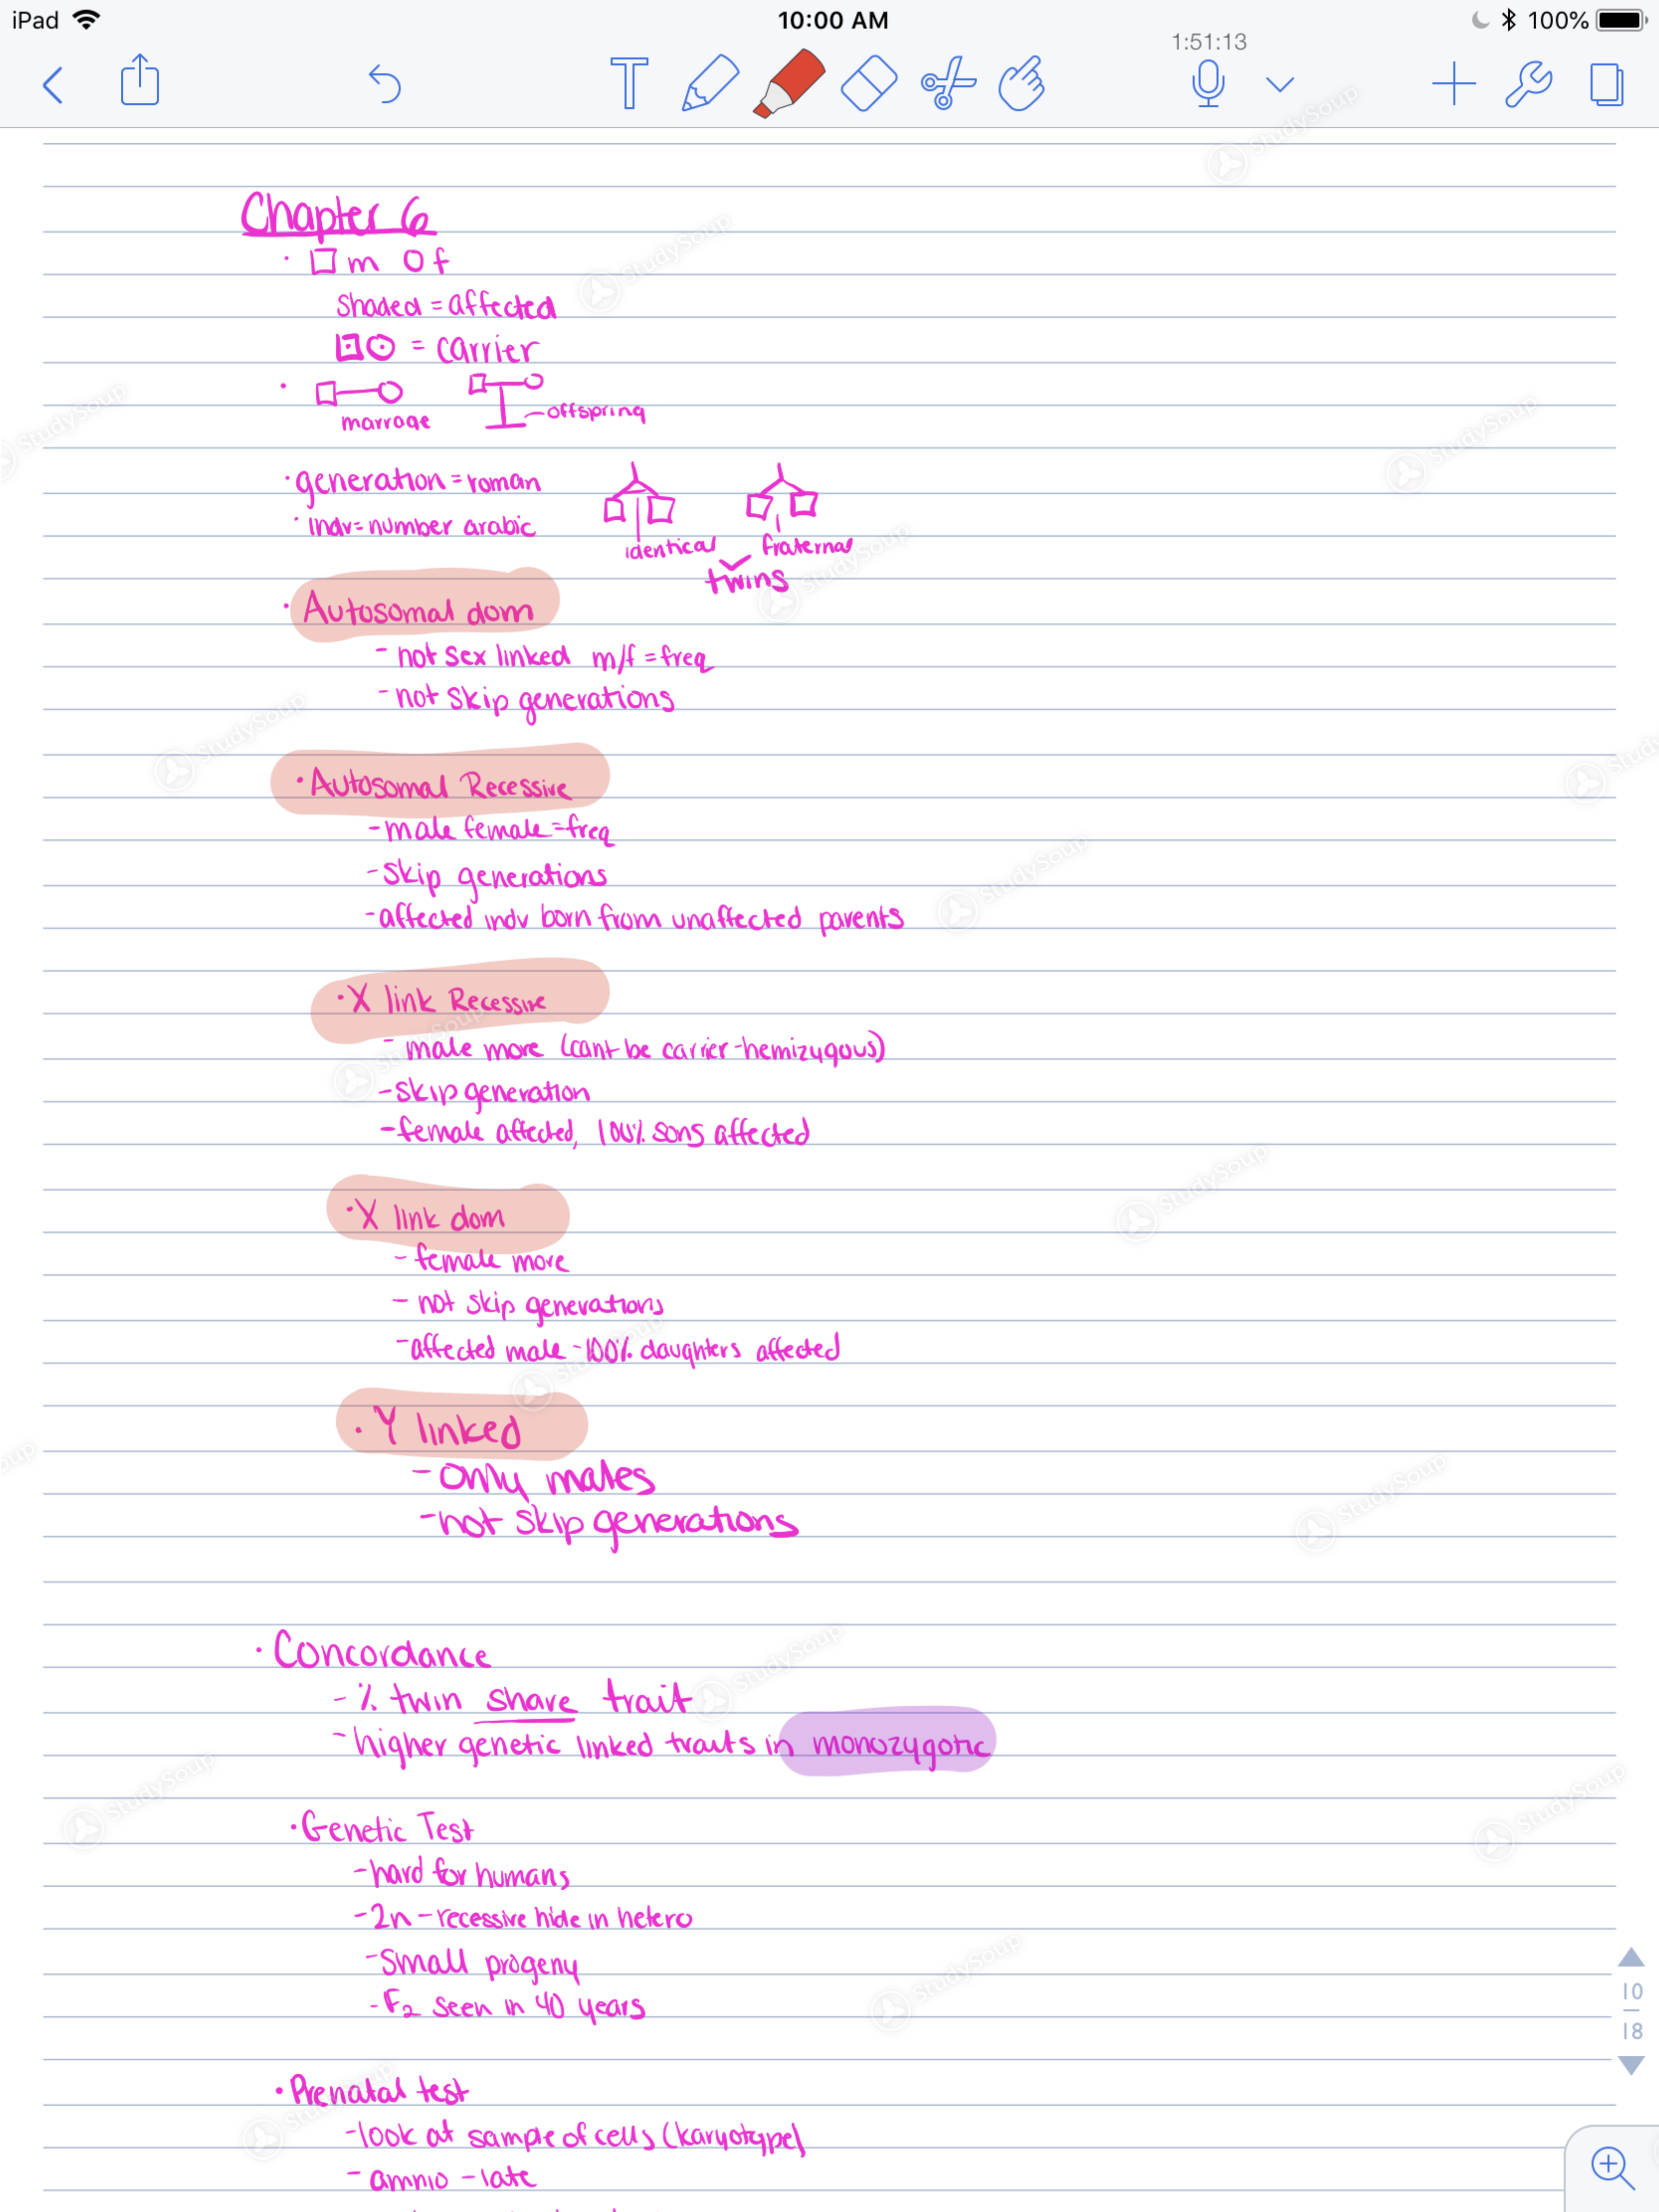 iPad
10:00 AM
100%
1:51:13
Chapter 6
· m f
shaded = affected
= carrier
marrage
offspring
· generation = roman
· indv = number arabic
identical fraternal
twins
· Autosomal dom
- not sex linked m/f = freq
- not skip generations
· Autosomal Recessive
- male female = freq
- skip generations
- affected indv born from unaffected parents
· X link Recessive
- male more (cant be carrier - hemizygous)
- skip generation
- female affected, 100% sons affected
· X link dom
- female more
- not skip generations
- affected male - 100% daughters affected
· Y linked
- only males
- not skip generations
· Concordance
- % twin share trait
- higher genetic linked traits in monozygotic
· Genetic Test
- hard for humans
- 2n - recessive hide in hetero
- small progeny
- F2 seen in 40 years
· Prenatal test
- look at sample of cells (karyotype)
- amnio - late
10
18
StudySoup